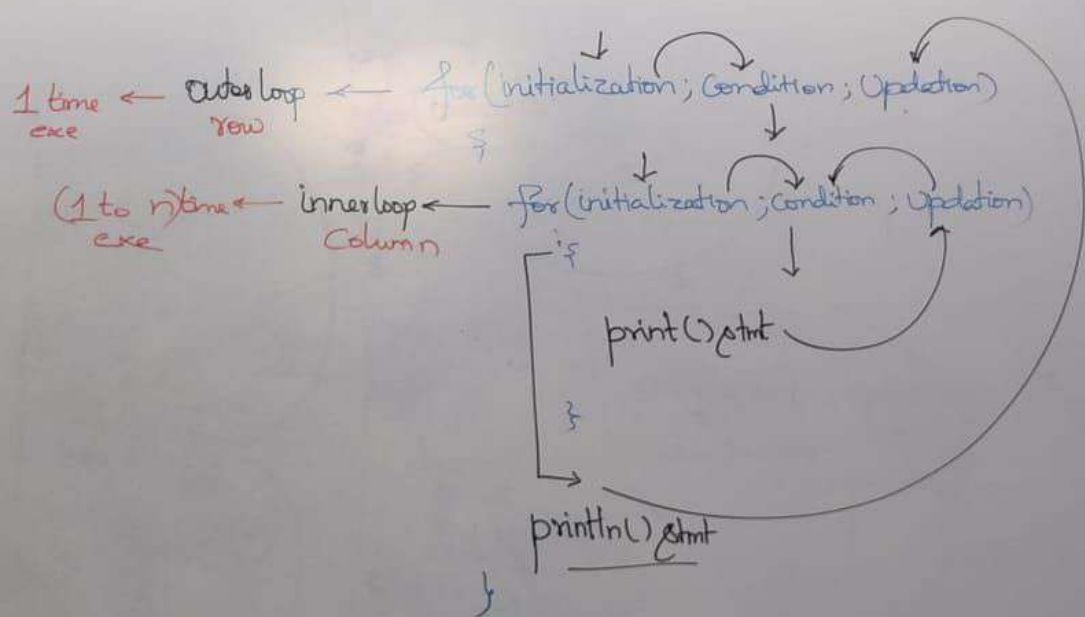 1 time ← outer loop ← for(initialization; Condition; Updation)
exe row
{
(1 to n)time ← innerloop ← for(initialization; Condition; Updation)
exe Column
{
print() stmt
}
println() stmt
}